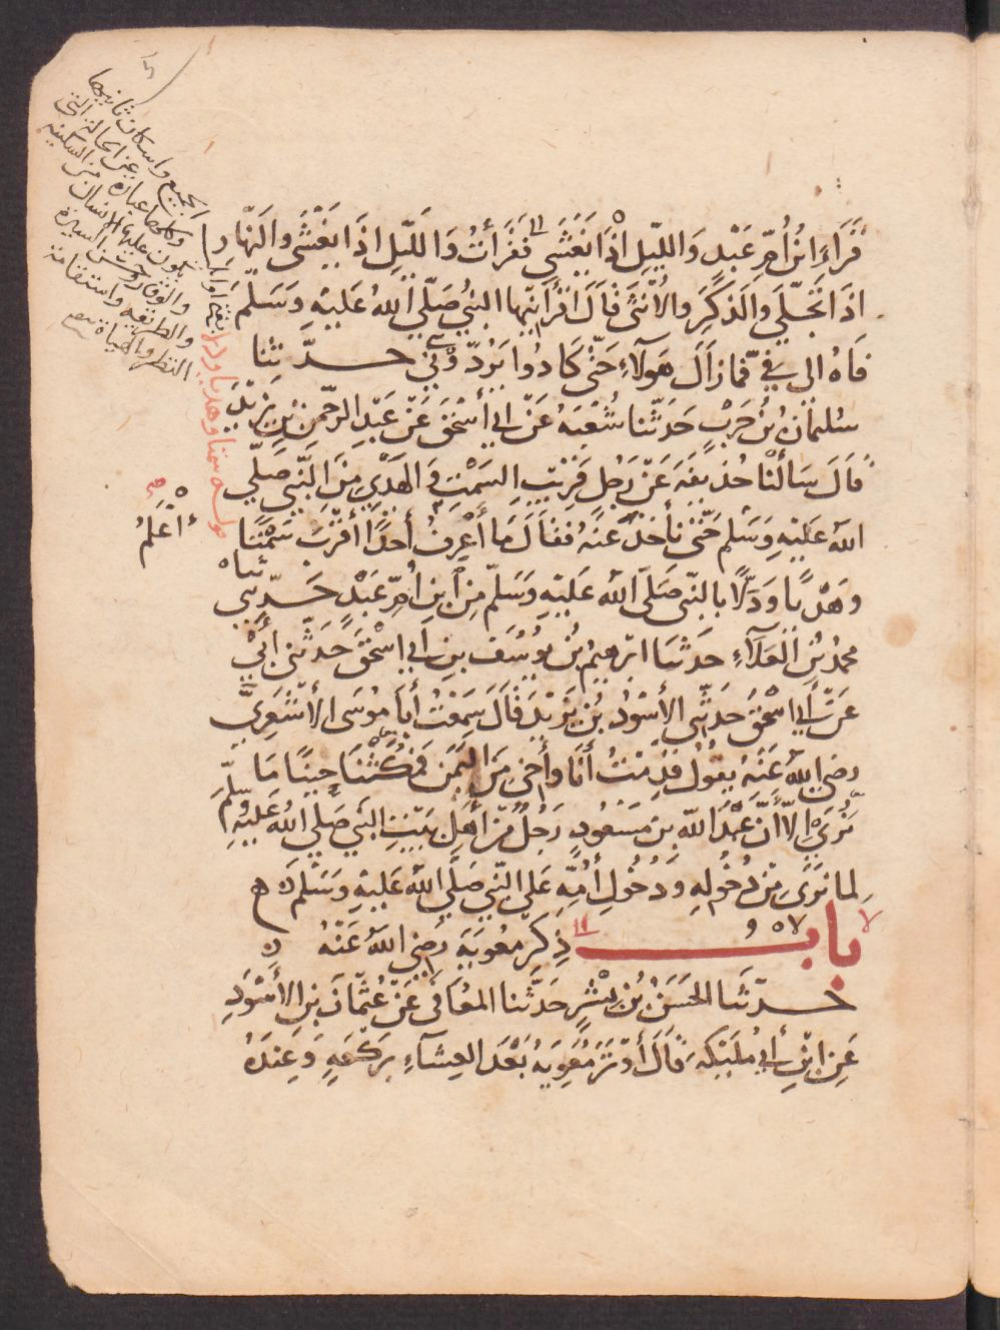 قَرَأَ ابنُ أُمِّ عَبْدٍ وَاللَّيْلِ إِذَا يَغْشَى فَقَرَأْتُ وَاللَّيْلِ إِذَا يَغْشَى وَالنَّهَارِ
إِذَا تَجَلَّى وَالذَّكَرِ وَالأُنْثَى قَالَ أَقْرَأَنِيهَا النبيُّ صَلَّى اللهُ عَلَيْهِ وَسَلَّمَ
فَاهُ إِلَى فِيَّ فَمَا زَالَ هَؤُلَاءِ حَتَّى كَادُوا يَرُدُّونِي حــدّثنا
سُلَيمَانُ بْنُ حَرْبٍ حَدَّثَنَا شُعْبَةُ عَنْ أَبِي إِسْحَقَ عَنْ عَبْدِ الرَّحْمَنِ بْنِ يَزِيدَ
قَالَ سَأَلْنَا حُذَيْفَةَ عَنْ رَجُلٍ قَرِيبِ السَّمْتِ وَالهَدْيِ مِنَ النَّبِيِّ صَلَّى
اللهُ عَلَيْهِ وَسَلَّمَ حَتَّى نَأْخُذَ عَنْهُ فَقَالَ مَا أَعْرِفُ أَحَدًا أَقْرَبَ سَمْتًا
وَهَدْيًا وَدَلًّا بِالنَّبِيِّ صَلَّى اللهُ عَلَيْهِ وَسَلَّمَ مِنِ ابْنِ أُمِّ عَبْدٍ حَــدَّثَنِي
محمدُ بْنُ العَلَاءِ حَدَّثَنَا إِبْرَهِيمُ بْنُ يُوسُفَ بْنِ أَبِي إِسْحَقَ حَدَّثَنِي أَبِي
عَنْ أَبِي إِسْحَقَ حَدَّثَنِي الأَسْوَدُ بْنُ يَزِيدَ قَالَ سَمِعْتُ أَبَا مُوسَى الأَشْعَرِيَّ
رضي اللهُ عَنْهُ يقُولُ قَدِمْتُ أَنَا وَأَخِي مِنَ اليَمَنِ فَمَكَثْنَا حِينًا مَا
نُرَى إِلَّا أَنَّ عَبْدَ اللهِ بن مَسْعُودٍ رَجُلٌ مِنْ أَهْلِ بَيْتِ النبي صَلَّى اللهُ عَلَيْهِ وسَلَّمَ
لِمَا نَرَى مِنْ دُخُولِهِ وَدُخُولِ أُمِّهِ عَلَى النَّبِيِّ صَلَّى اللهُ عَلَيْهِ وَسَلَّمَ
بابـــ ذِكرِ مُعوِيَةَ رَضِي اللهُ عَنْهُ
حــدّثنا الحَسَنُ بْنُ بِشْرٍ حَدَّثَنَا المُعَافَى عَنْ عُثْمَانَ بْنِ الأَسْوَدِ
عَنِ ابْنِ أَبِي مُلَيْكَةَ قَالَ أَوْتَرَ مُعَوِيَةُ بَعْدَ العِشَاءِ بِرَكْعَةٍ وَعِنْدَهُ
أَعْلَمُ
قوله سمتا وهديا ودلا
الجميع واسكان ثانيها
وكلها عبارة عن الحالة التي
يكون عليها الانسان من السكينة
والوقار وحسن السيرة
والطريقة واستقامة
المنظر والهيأة